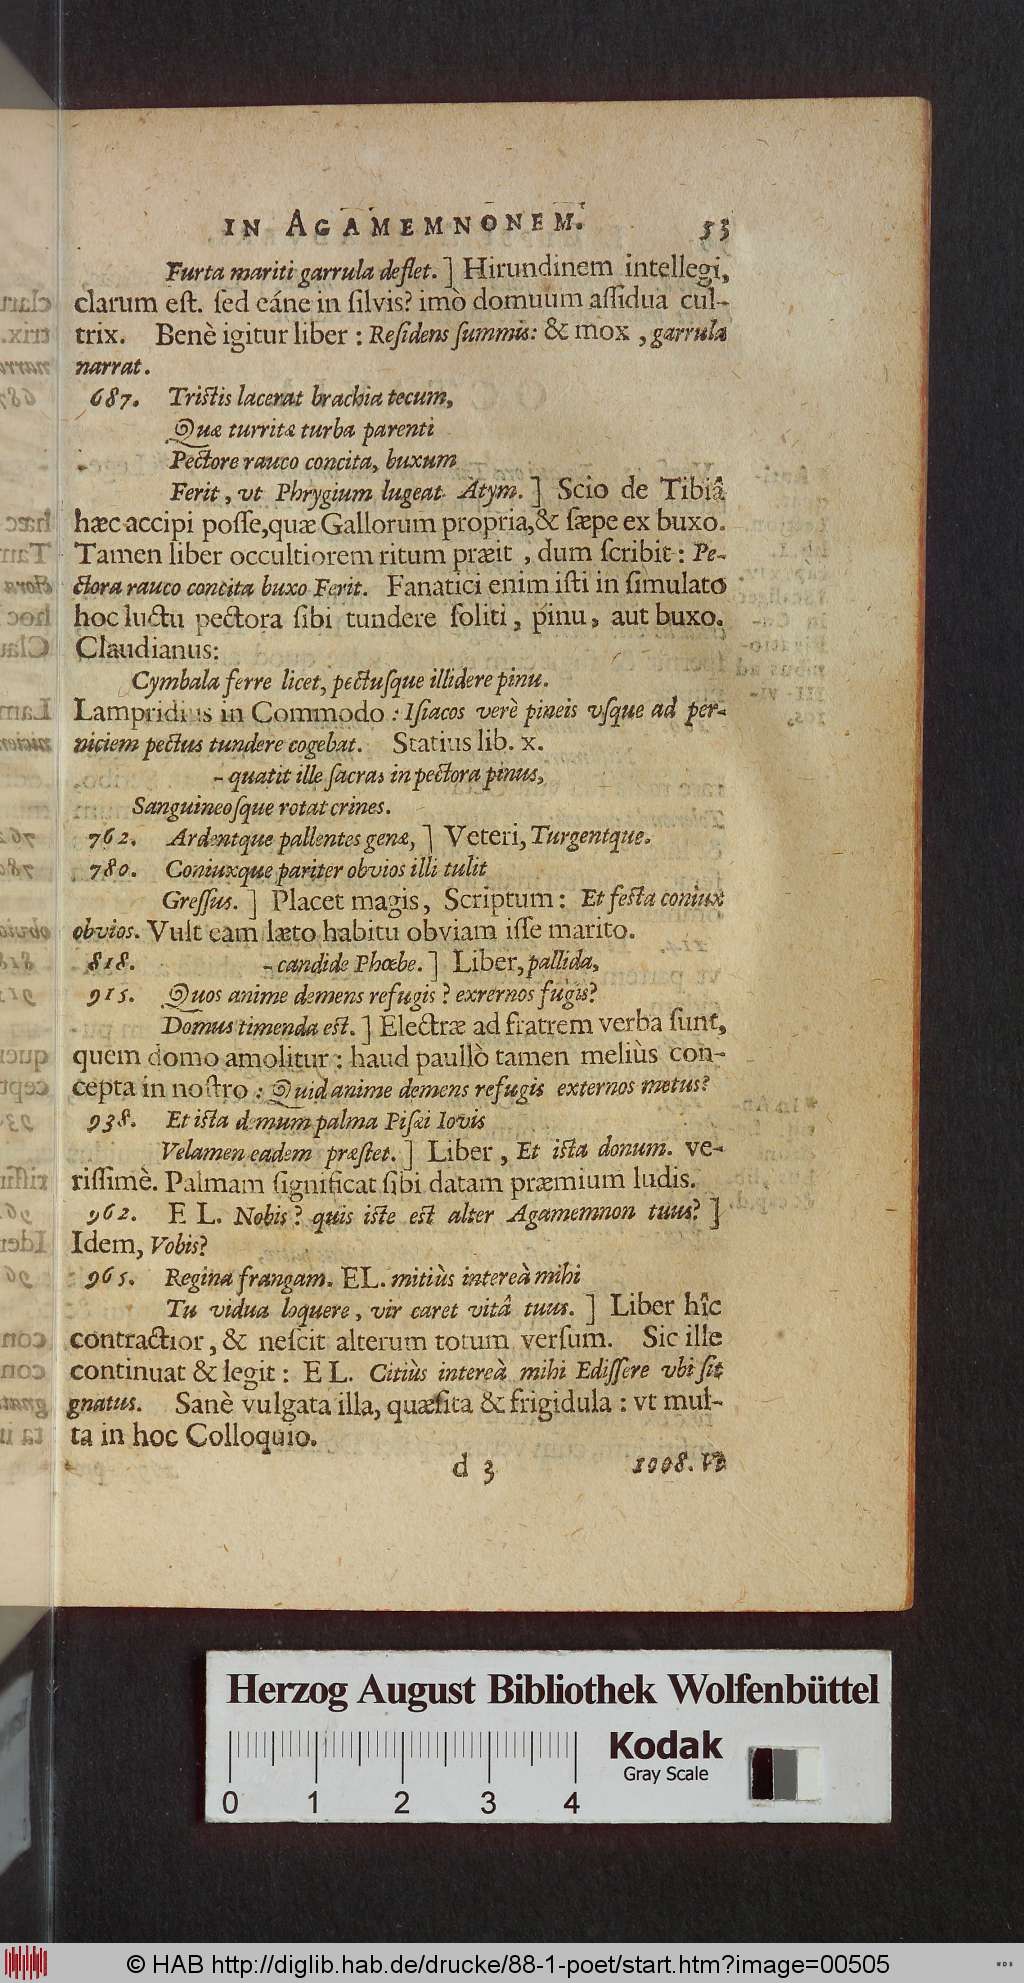 IN AGAMEMNONEM. 53
Furta mariti garrula deflet. ] Hirundinem intellegi,
clarum eſt. ſed eáne in ſilvis? imò domuum aſſidua cul-
trix. Benè igitur liber : Reſidens ſummis: & mox , garrula
narrat.
687. Triſtis lacerat brachia tecum,
Quæ turritæ turba parenti
Pectore rauco concita, buxum
Ferit , vt Phrygium lugeat Atym. ] Scio de Tibiâ
hæc accipi poſſe, quæ Gallorum propria, & ſæpe ex buxo.
Tamen liber occultiorem ritum præit , dum ſcribit : Pe-
ctora rauco concita buxo Ferit. Fanatici enim iſti in ſimulato
hoc luctu pectora ſibi tundere ſoliti , pinu, aut buxo.
Claudianus:
Cymbala ferre licet, pectuſque illidere pinu.
Lampridius in Commodo : Iſiacos verè pineis vſque ad per-
niciem pectus tundere cogebat. Statius lib. x.
- quatit ille ſacras in pectora pinus,
Sanguineoſque rotat crines.
762. Ardentque pallentes genæ, ] Veteri, Turgentque.
780. Coniuxque pariter obvios illi tulit
Greſſus. ] Placet magis, Scriptum : Et feſta coniux
obvios. Vult eam læto habitu obviam iſſe marito.
818. - candide Phœbe. ] Liber, pallida,
915. Quos anime demens refugis ? exrernos fugis?
Domus timenda eſt. ] Electræ ad fratrem verba ſunt,
quem domo amolitur : haud paullò tamen meliùs con-
cepta in noſtro : Quid anime demens refugis externos metus?
938. Et iſta demum palma Piſæi Iovis
Velamen eadem præſtet. ] Liber , Et iſta donum. ve-
riſſimè. Palmam ſignificat ſibi datam præmium ludis.
962. E L. Nobis ? quis iſte eſt alter Agamemnon tuus? ]
Idem, Vobis?
965. Regina frangam. EL. mitiùs intereà mihi
Tu vidua loquere , vir caret vitâ tuus. ] Liber hîc
contractior , & neſcit alterum totum verſum. Sic ille
continuat & legit : E L. Citiùs intereà mihi Ediſſere vbi ſit
gnatus. Sanè vulgata illa, quæſita & frigidula : vt mul-
ta in hoc Colloquio.
d 3 1008. Vt
Herzog August Bibliothek Wolfenbüttel
Kodak
Gray Scale
0 1 2 3 4
© HAB http://diglib.hab.de/drucke/88-1-poet/start.htm?image=00505